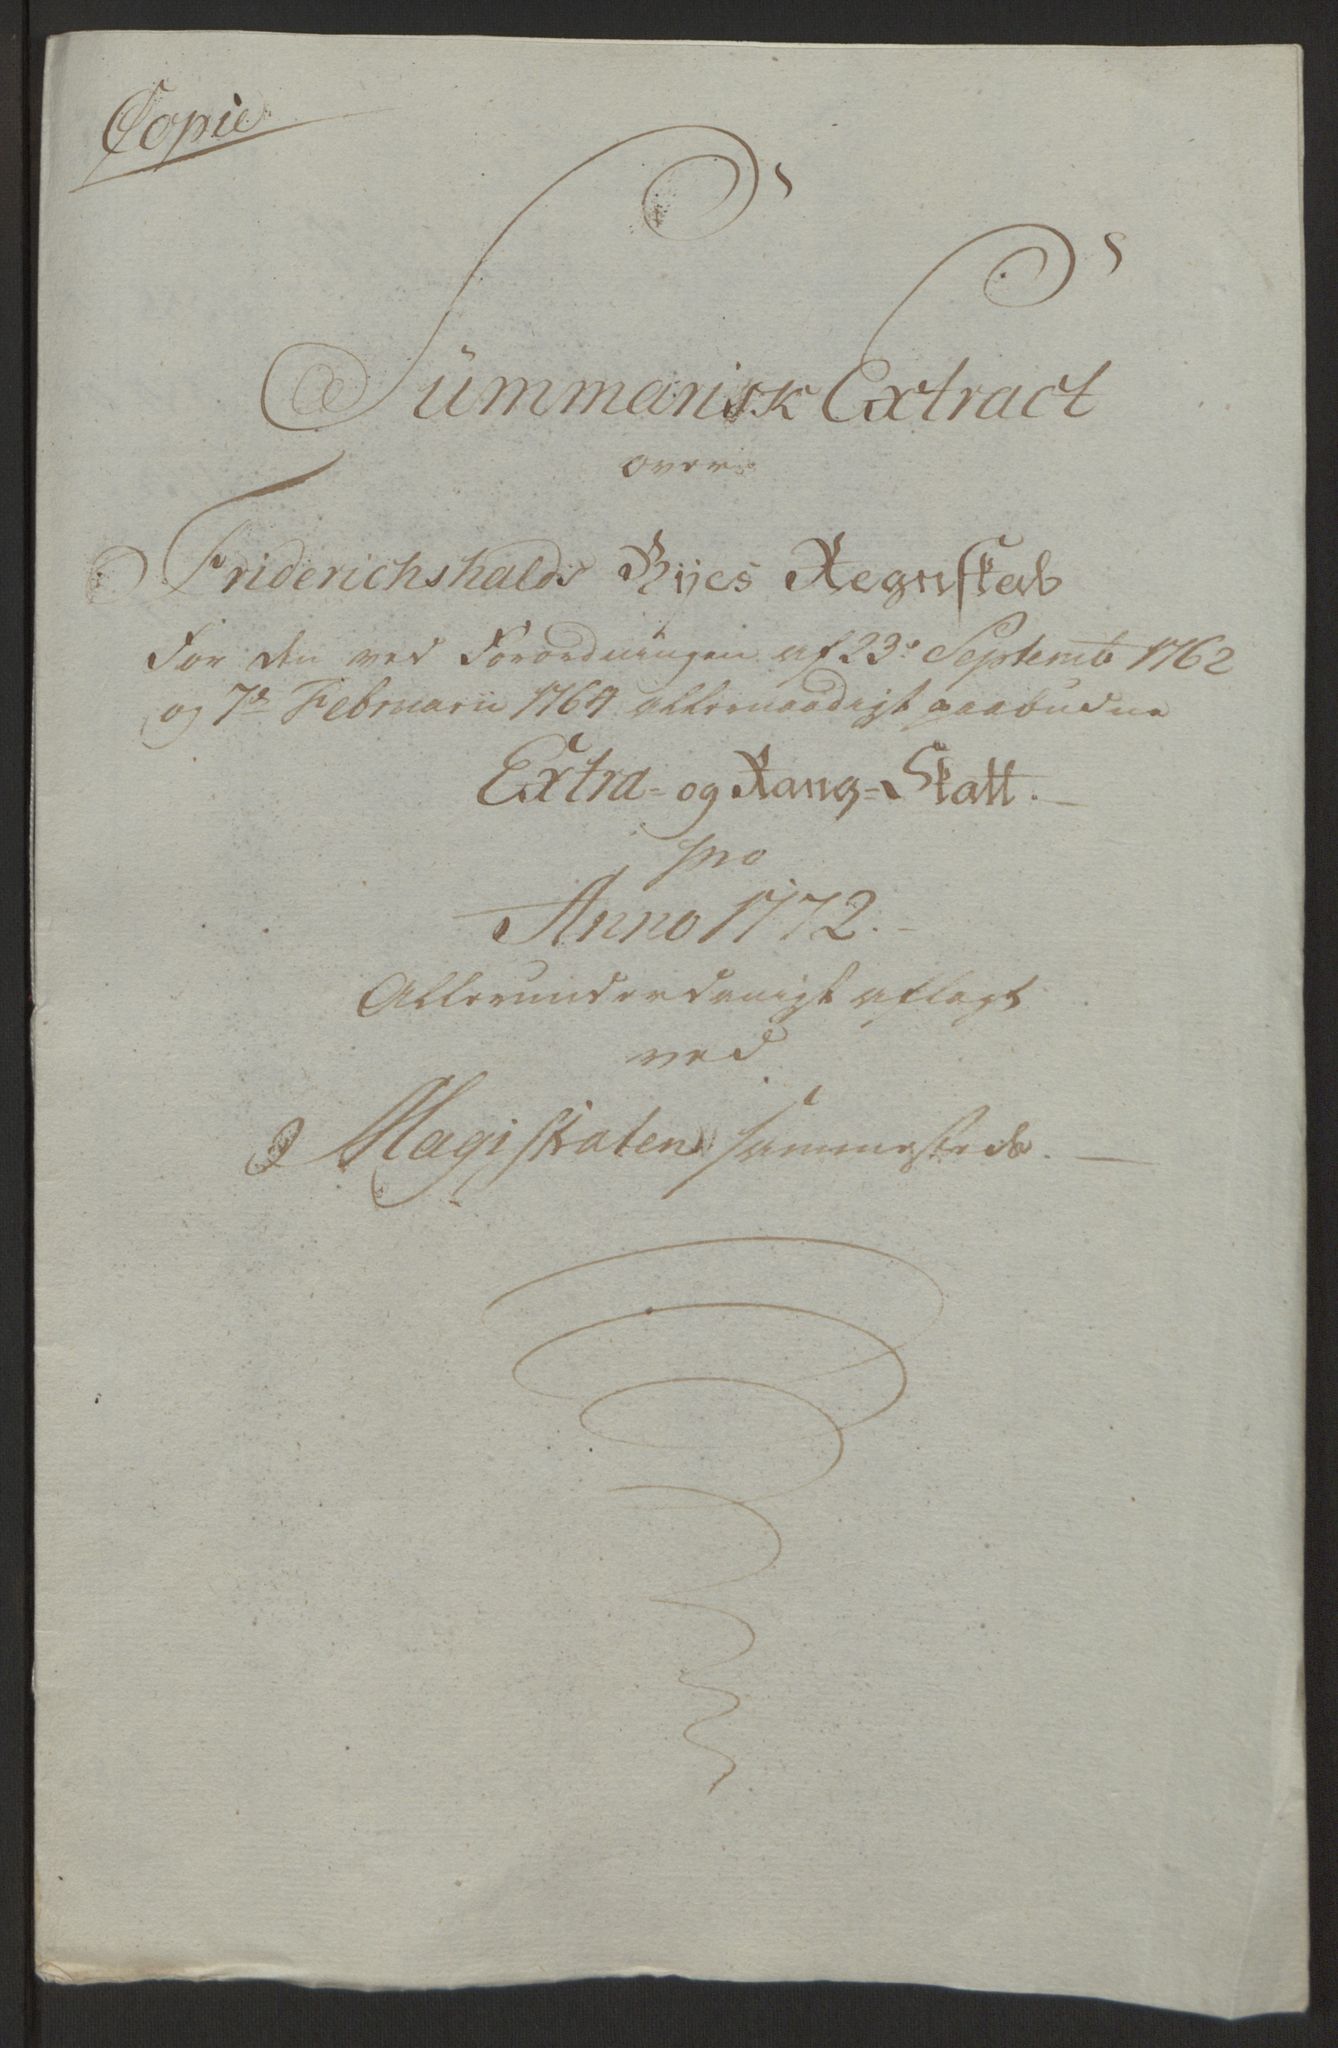 Copie
Sümmarisk Extract
over
Friderichshalds Byes Regnskab
for den ved Forordningen af 23de Septembr 1762
og 7de Februarii 1764 allernaadigst paabudne
Extra- og Rang-Skatt.
pro
Anno 1772.
Allerunderdanigst aflagt
ved
Magistraten sammesteds.